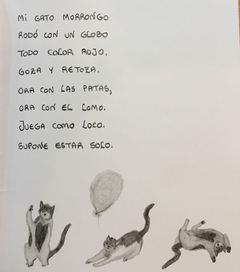 MI GATO MORRONGO
RODÓ CON UN GLOBO
TODO COLOR ROJO.
GOZA Y RETOZA.
ORA CON LAS PATAS,
ORA CON EL LOMO.
JUEGA COMO LOCO.
SUPONE ESTAR SOLO.